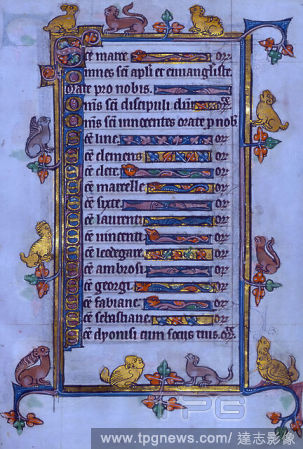 Sce marce or
Omnes sci apli et euuangliste
orate pro nobis.
Omis sci discipuli dni or
Omis sci innocentes orate p nob
Sce line or
Sce clemens or
Sce clete or
Sce marcelle or
Sce sixte or
Sce laurenti or
Sce uincenti or
Sce leodegare or
Sce ambrosi or
Sce georgi or
Sce fabiane or
Sce sebastiane or
Sce dyonisi cum sociis tuis. or
TPG
www.tpgnews.com/達志影像